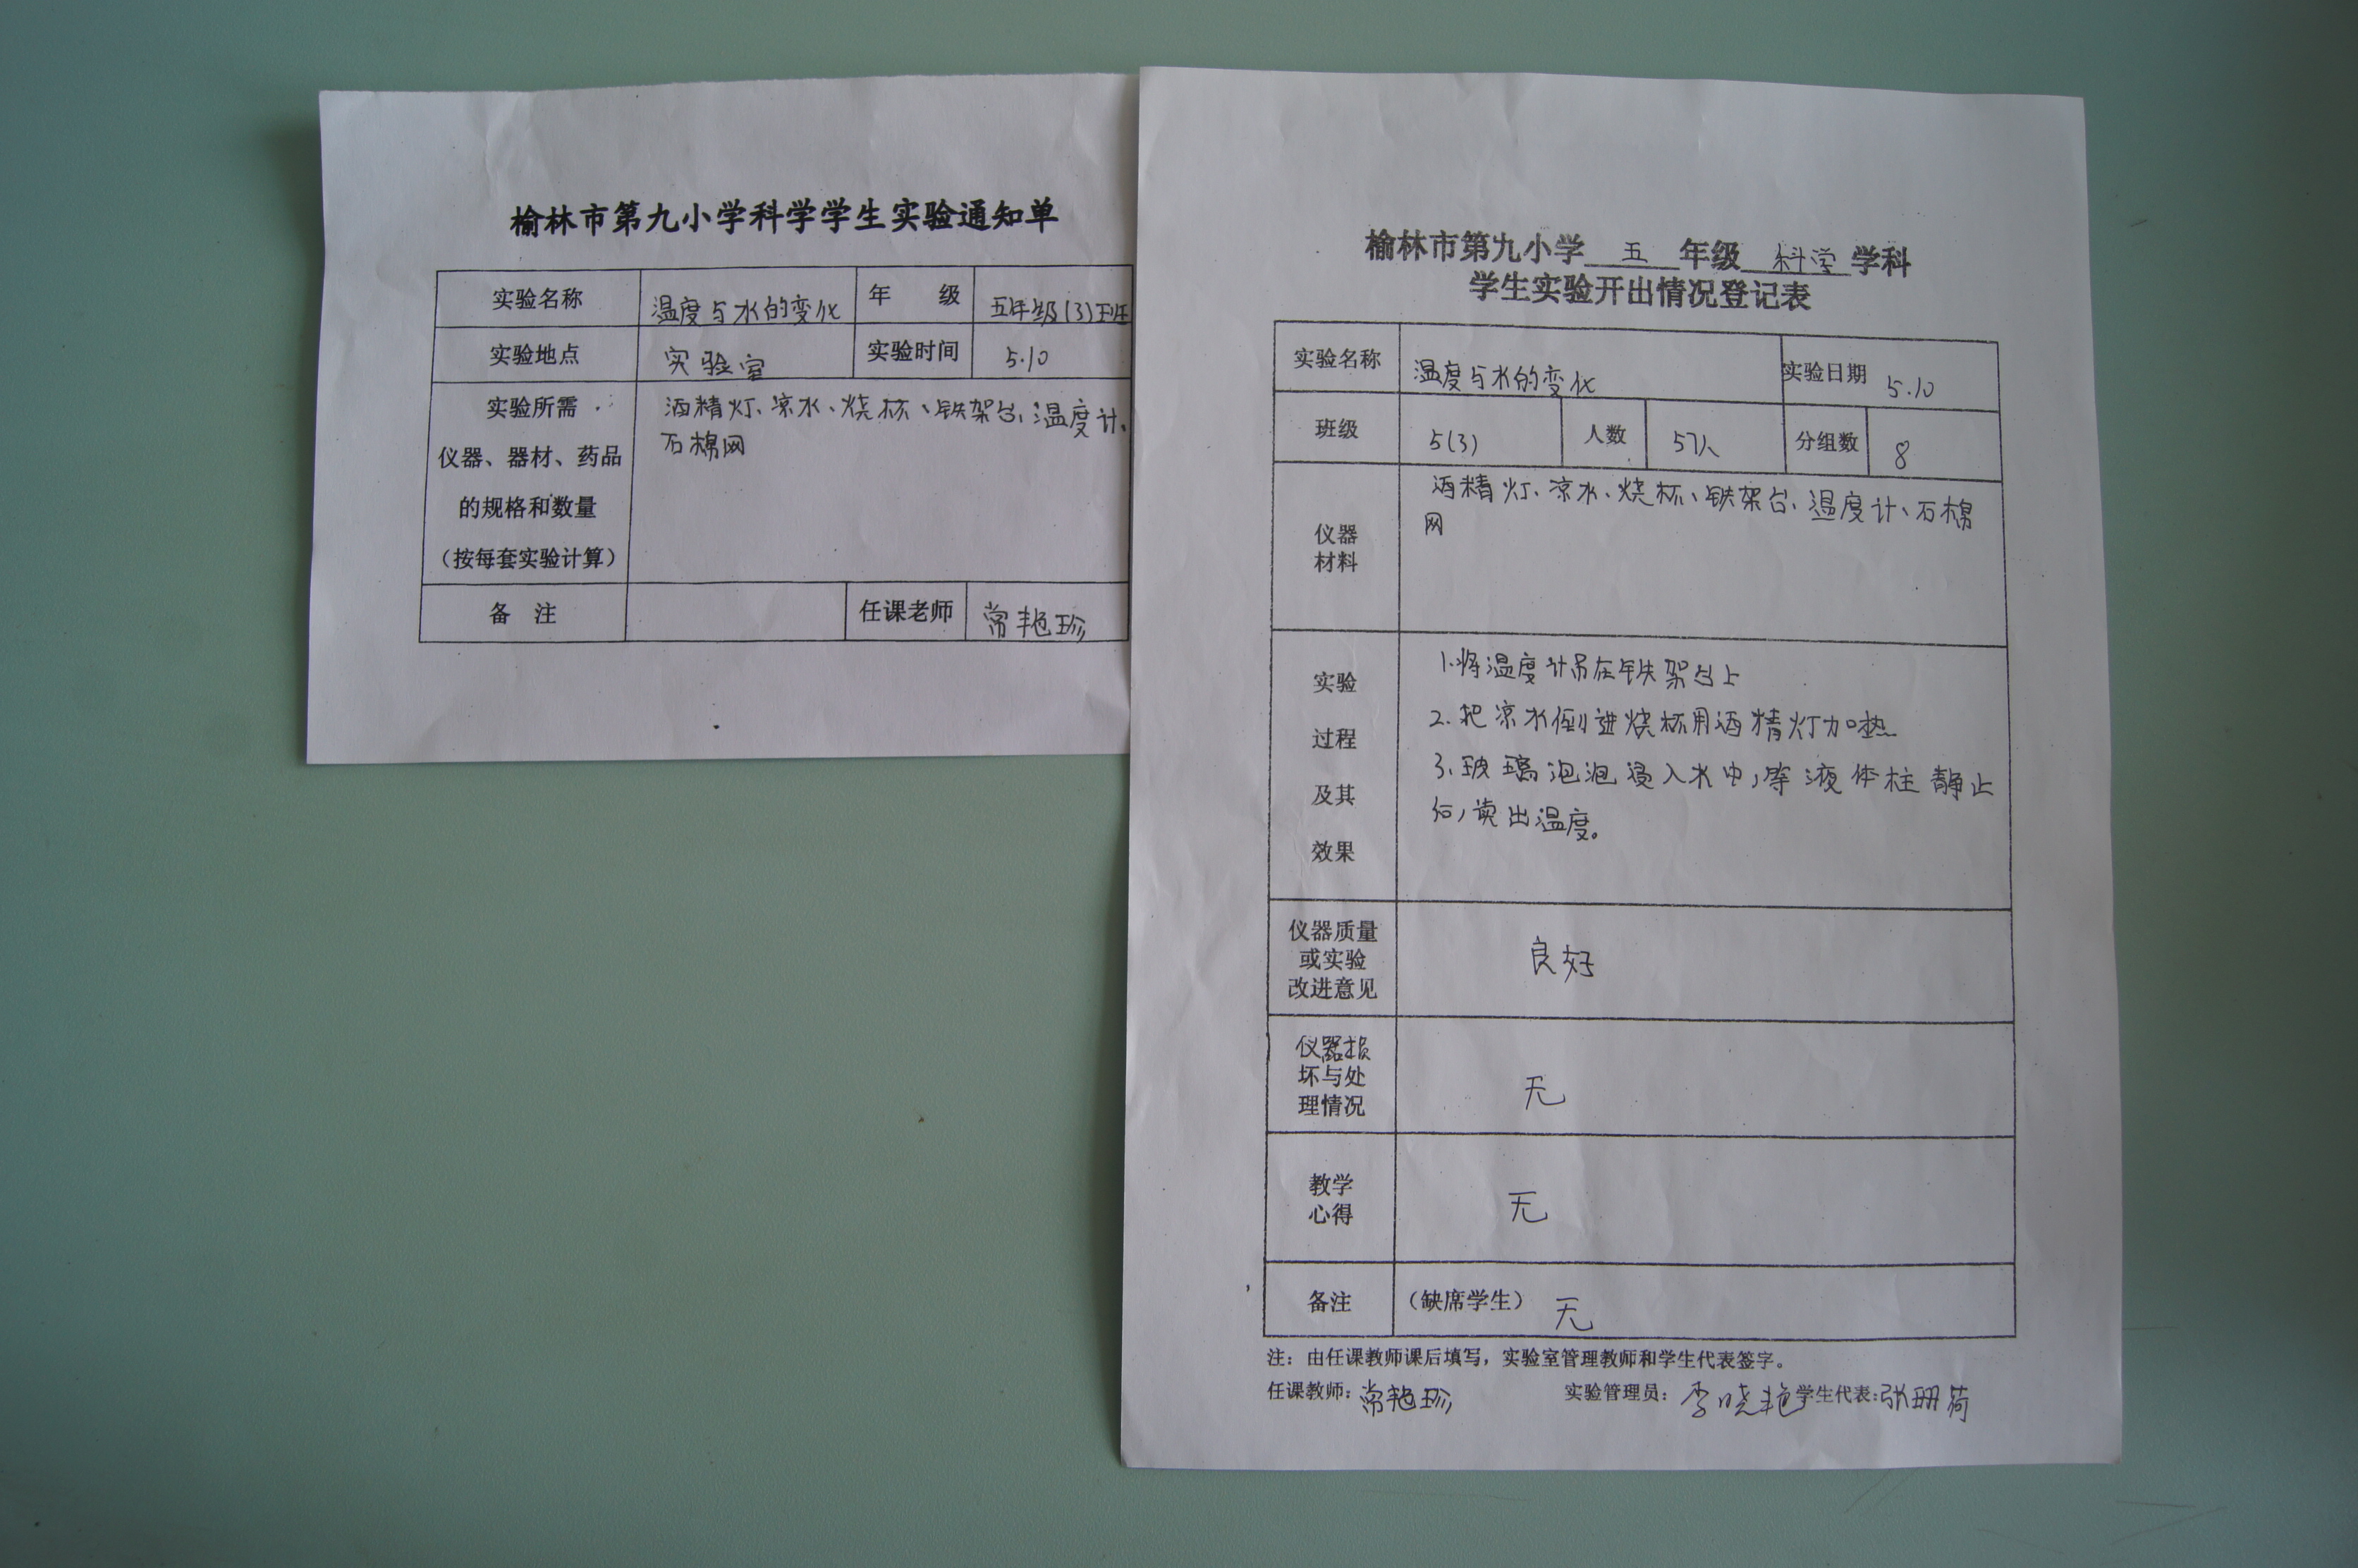 榆林市第九小学科学学生实验通知单
实验名称 温度与水的变化 年 级 五年级(3)班
实验地点 实验室 实验时间 5.10
实验所需
仪器、器材、药品
的规格和数量
（按每套实验计算）
酒精灯、凉水、烧杯、铁架台、温度计、
石棉网
备 注 任课老师 常艳珍
榆林市第九小学 五 年级 科学 学科
学生实验开出情况登记表
实验名称 温度与水的变化 实验日期 5.10
班级 5(3) 人数 57人 分组数 8
仪器
材料
酒精灯、凉水、烧杯、铁架台、温度计、石棉
网
实验
过程
及其
效果
1.将温度计吊在铁架台上
2.把凉水倒进烧杯用酒精灯加热
3.玻璃泡泡浸入水中,等液体柱静止
后,读出温度。
仪器质量
或实验
改进意见
良好
仪器损
坏与处
理情况
无
教学
心得
无
备注 （缺席学生） 无
注：由任课教师课后填写，实验室管理教师和学生代表签字。
任课教师：常艳珍 实验管理员：李晓艳 学生代表：张珊荷